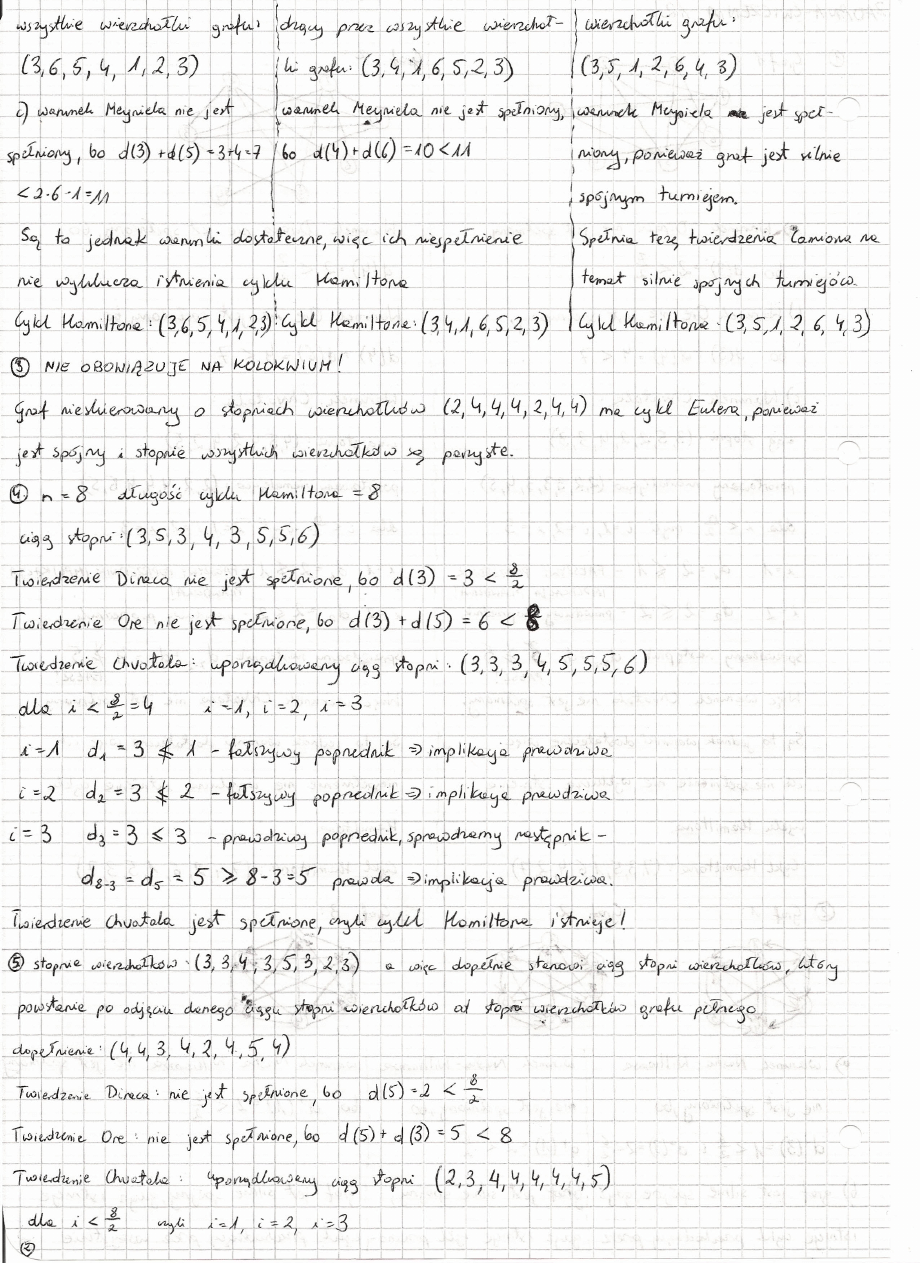 wszystkie wierzchołki grafu:
(3,6,5,4,1,2,3)
c) warunek Meyniela nie jest
spełniony, bo d(3)+d(5)=3+4=7
<2·6-1=11
dzący przez wszystkie wierzchoł-
ki grafu: (3,4,1,6,5,2,3)
warunek Meyniela nie jest spełniony,
bo d(4)+d(6)=10<11
wierzchołki grafu:
(3,5,1,2,6,4,3)
warunek Meyniela jest speł-
niony, ponieważ graf jest silnie
spójnym turniejem.
Są to jednak warunki dostateczne, więc ich niespełnienie
nie wyklucza istnienia cyklu Hamiltona
Cykl Hamiltona: (3,6,5,4,1,2,3)
Cykl Hamiltona: (3,4,1,6,5,2,3)
Spełnia tezę twierdzenia Camiona na
temat silnie spójnych turniejów.
Cykl Hamiltona: (3,5,1,2,6,4,3)
③ NIE OBOWIĄZUJE NA KOLOKWIUM!
Graf nieskierowany o stopniach wierzchołków (2,4,4,4,2,4,4) ma cykl Eulera, ponieważ
jest spójny i stopnie wszystkich wierzchołków są parzyste.
④ n=8 długość cyklu Hamiltona = 8
ciąg stopni: (3,5,3,4,3,5,5,6)
Twierdzenie Diraca nie jest spełnione, bo d(3) = 3 < 8/2
Twierdzenie Ore nie jest spełnione, bo d(3)+d(5) = 6 < 8
Twierdzenie Chvatala: uporządkowany ciąg stopni: (3,3,3,4,5,5,5,6)
dla i < 8/2 = 4 i=1, i=2, i=3
i=1 d₁ = 3 ≰ 1 - fałszywy poprzednik ⇒ implikacja prawdziwa
i=2 d₂ = 3 ≰ 2 - fałszywy poprzednik ⇒ implikacja prawdziwa
i=3 d₃ = 3 ≤ 3 - prawdziwy poprzednik, sprawdzamy następnik -
d₈₋₃ = d₅ = 5 ⩾ 8-3=5 prawda ⇒ implikacja prawdziwa.
Twierdzenie Chvatala jest spełnione, czyli cykl Hamiltona istnieje!
⑤ stopnie wierzchołków: (3,3,4,3,5,3,2,3) a więc dopełnie stanowi ciąg stopni wierzchołków, który
powstanie po odjęciu danego ciągu stopni wierzchołków od stopni wierzchołków grafu pełnego
dopełnienie: (4,4,3,4,2,4,5,4)
Twierdzenie Diraca: nie jest spełnione, bo d(5)=2 < 8/2
Twierdzenie Ore: nie jest spełnione, bo d(5)+d(3)=5 < 8
Twierdzenie Chvatala: uporządkowany ciąg stopni (2,3,4,4,4,4,4,5)
dla i < 8/2 czyli i=1, i=2, i=3
②